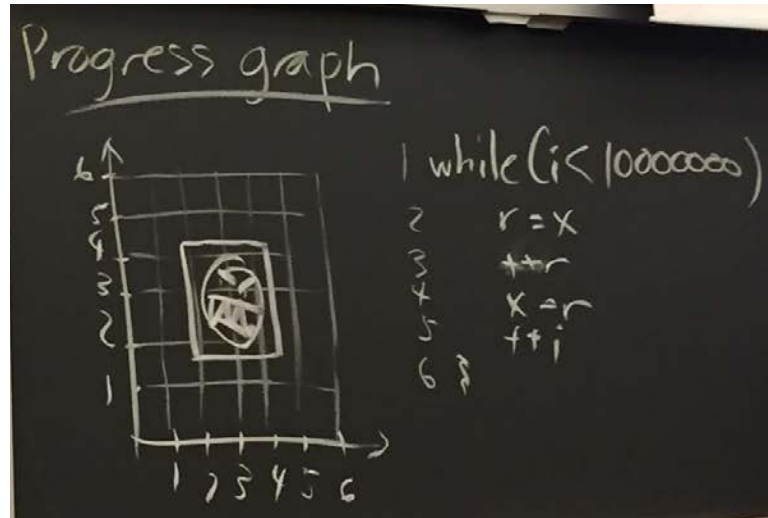 Progress graph
6
5
4
3
2
1
1 2 3 4 5 6
1 while(i<10000000)
2 r=x
3 ++r
4 x=r
5 ++i
6 }